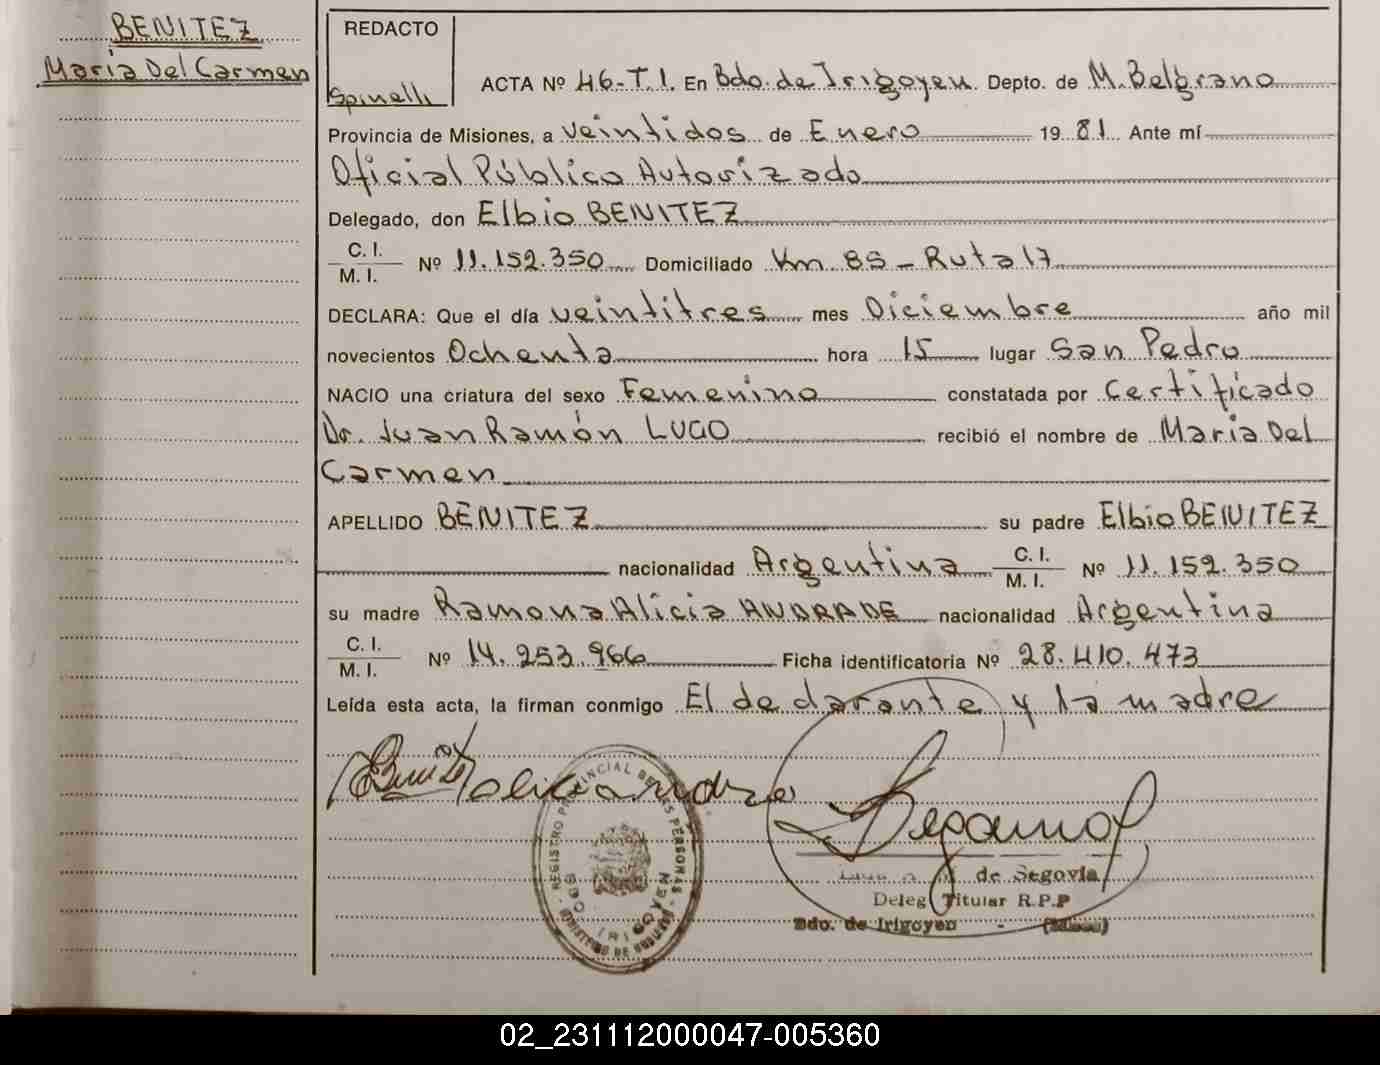 BENITEZ
Maria Del Carmen
REDACTO
Spinelli
ACTA Nº 46-T.I. En Bdo. de Irigoyen Depto. de M. Belgrano
Provincia de Misiones, a veintidos de Enero 1981 Ante mí
Oficial Público Autorizado
Delegado, don Elbio BENITEZ
C. I.
M. I. Nº 11.152.350 Domiciliado Km 85 - Ruta 17
DECLARA: Que el día veintitres mes Diciembre año mil
novecientos Ochenta hora 15 lugar San Pedro
NACIO una criatura del sexo Femenino constatada por Certificado
Dr. Juan Ramón LUGO recibió el nombre de Maria Del
Carmen
APELLIDO BENITEZ su padre Elbio BENITEZ
nacionalidad Argentina C. I.
M. I. Nº 11.152.350
su madre Ramona Alicia ANDRADE nacionalidad Argentina
C. I.
M. I. Nº 14.253.966 Ficha identificatoria Nº 28.410.473
Leída esta acta, la firman conmigo El declarante y la madre
REGISTRO PROVINCIAL DE LAS PERSONAS
BDO IRIGOYEN
de Segovia
Deleg Titular R.P.P
Bdo. de Irigoyen - (Mnes)
02_231112000047-005360